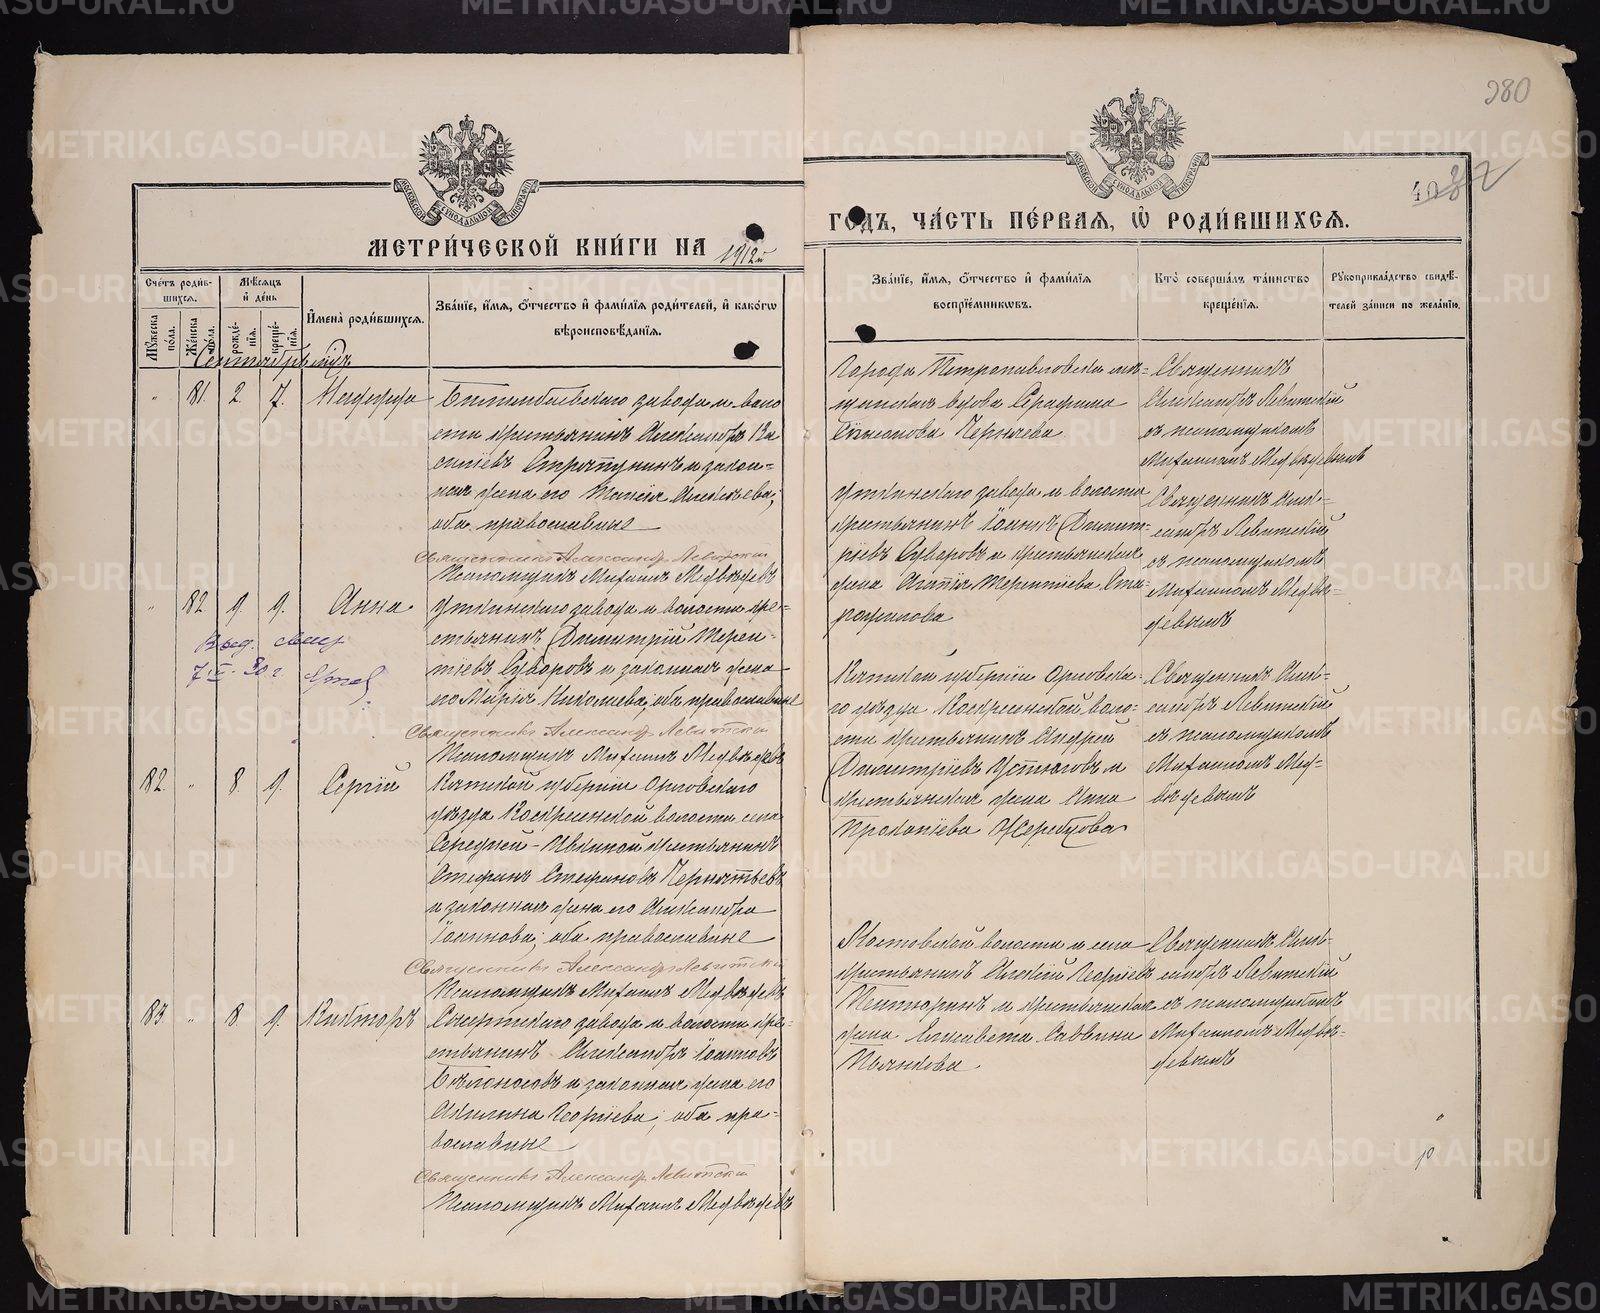 280
МЕТРИ́ЧЕСКОЙ КНИ́ГИ НА 1912й
ГОДЪ, ЧА́СТЬ ПЕ́РВАЯ, Ѿ РОДИ́ВШИХСЯ.
Сче́тъ роди́вшихся.
Мѣ́сяцъ и де́нь
Мужеска по́ла.
Же́нска по́ла.
рожде́нія.
креще́нія.
И҆мена̀ роди́вшихся.
Зва́ніе, и҆́мя, ѻ҆́тчество и҆ фами́лія роди́телей, и҆ како́гѡ
вѣроисповѣ́данія.
Зва́ніе, и҆́мя, ѻ҆́тчество и҆ фами́лія
воспріе́мниковъ.
Кто̀ соверша́лъ та́инство
креще́нія.
Рукоприкла́дство свидѣ́-
телей за́писи по жела́нію.
Сентябрь мцъ
" 81. 2. 7.
Билимбаевскаго завода и воло
сти крестьянинъ Александръ Ва
силіевъ и закон-
ная жена его Таисія Алексѣева;
оба православные
Священникъ Александр Левитскій
Псаломщикъ Михаилъ Медвѣдевъ
Города Петропавловска мѣ-
щанская вдова Серафима
Черняева
Священникъ
Александръ Левитскій
съ псаломщикомъ
Михаиломъ Медвѣдевымъ
" 82 9. 9. Анна
Выд. свид
7 30 г.
Уткинскаго завода и волости кре-
стьянинъ Димитрій Терен-
тіевъ Суворовъ и законная жена
его Марія Николаева, оба православные
Священникъ Александр Левитскій
Псаломщикъ Михаилъ Медвѣдевъ
Уткинскаго завода и волости
крестьянинъ Іоаннъ Димит-
ріевъ Суворовъ и крестьянская
жена Агапія Терентіева Ста-
рожилова
Священникъ Алек-
сандръ Левитскій
съ псаломщикомъ
Михаиломъ Медвѣ-
девымъ
82. " 8. 9. Сергій
Вятской губерніи Орловскаго
уѣзда Воскресенской волости села
крестьянинъ
Стефанъ Стефановъ
и законная жена его Александра
Іоаннова; оба православные
Священникъ Александр Левитскій
Псаломщикъ Михаилъ Медвѣдевъ
Вятской губерніи Орловска-
го уѣзда Воскресенской воло-
сти крестьянинъ Андрей
Димитріевъ Устюговъ и
крестьянская жена Анна
Прокопіева Жеребцова
Священникъ Алек-
сандръ Левитскій
съ псаломщикомъ
Михаиломъ Мед-
вѣдевымъ
83 " 8. 9. Викторъ
Сысертскаго завода и волости кре-
стьянинъ Александръ Іоанновъ
Бѣлоносовъ и законная жена его
Акилина Георгіева; оба пра-
вославные
Священникъ Александр Левитскій
Псаломщикъ Михаилъ Медвѣдевъ
волости и села
крестьянинъ Алексій Георгіевъ
и крестьянская
жена Елисавета Саввина
Пьянкова
Священникъ Алек-
сандръ Левитскій
съ псаломщикомъ
Михаиломъ Медвѣ-
девымъ
METRIKI.GASO-URAL.RU